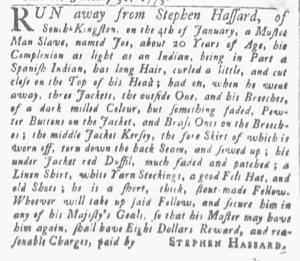 RUN away from Stephen Hassard, of
South-Kingston, on the 4th of January, a Mustee
Man Slave, named Joe, about 20 Years of Age, his
Complexion as light as an Indian, being in Part a
Spanish Indian, has long Hair, curled a little, and cut
close on the Top of his Head; had on, when he went
away, three Jackets, the outside One, and his Breeches,
of a dark milled Colour, but something faded, Pew-
ter Buttons on the Jacket, and Brass Ones on the Breech-
es; the middle Jacket Kersey, the fore Skirt of which is
worn off, torn down the back Seam, and sewed up; his
under Jacket red Duffil, much faded and patched; a
Linen Shirt, white Yarn Stockings, a good Felt Hat, and
old Shoes; he is a short, thick, stout-made Fellow.
Whoever will take up said Fellow, and secure him in
any of his Majesty's Goals, so that his Master may have
him again, shall have Eight Dollars Reward, and rea-
sonable Charges, paid by STEPHEN HASSARD.